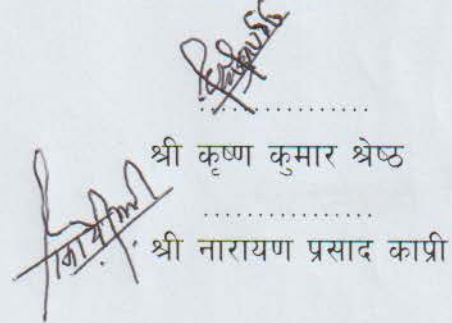 ................
श्री कृष्ण कुमार श्रेष्ठ
................
श्री नारायण प्रसाद काप्री